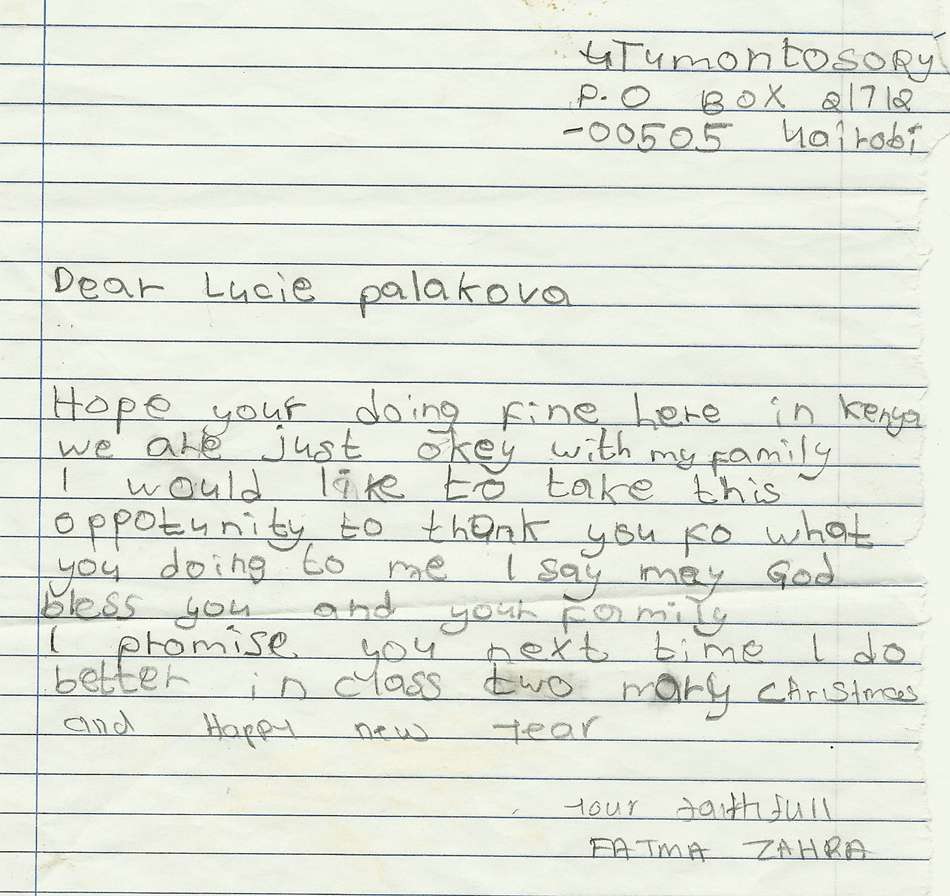 P.O BOX 21712
-00505 Nairobi
Dear Lucie palakova
Hope your doing fine here in kenya
we are just okey with my family
I would like to take this
oppotunity to thank you fo what
you doing to me I say may God
bless you and your family
I promise you next time I do
better in class two mary christmas
and Happy new year
your faithfull
FATMA ZAHRA